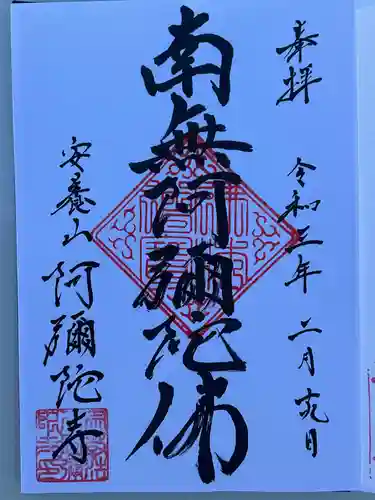 奉拝
令和三年 二月 日
南無阿彌陀佛
安養山
阿彌陀寺